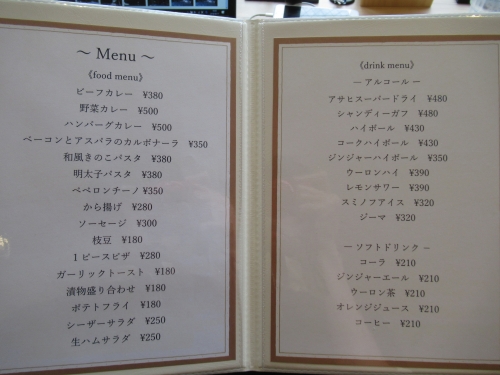 ～ Menu ～
《food menu》
ビーフカレー ¥380
野菜カレー ¥500
ハンバーグカレー ¥500
ベーコンとアスパラのカルボナーラ ¥350
和風きのこパスタ ¥380
明太子パスタ ¥380
ペペロンチーノ ¥350
から揚げ ¥280
ソーセージ ¥300
枝豆 ¥180
1ピースピザ ¥280
ガーリックトースト ¥180
漬物盛り合わせ ¥180
ポテトフライ ¥180
シーザーサラダ ¥250
生ハムサラダ ¥250
《drink menu》
— アルコール —
アサヒスーパードライ ¥480
シャンディーガフ ¥480
ハイボール ¥430
コークハイボール ¥430
ジンジャーハイボール ¥350
ウーロンハイ ¥390
レモンサワー ¥390
スミノフアイス ¥320
ジーマ ¥320
— ソフトドリンク —
コーラ ¥210
ジンジャーエール ¥210
ウーロン茶 ¥210
オレンジジュース ¥210
コーヒー ¥210